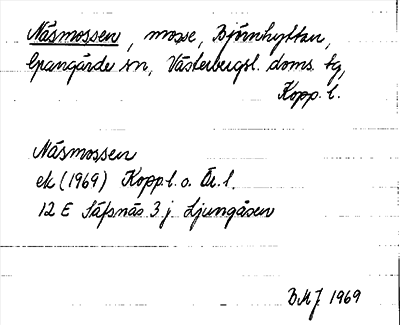 Näsmossen, mosse, Björnhyttan,
Grangärde sn, Västerbergsl. doms. tg,
Kopp. l.
Näsmossen
ek (1969) Kopp. l. o. Ör. l.
12 E Säfsnäs 3 j. Ljungåsen
BMJ. 1969